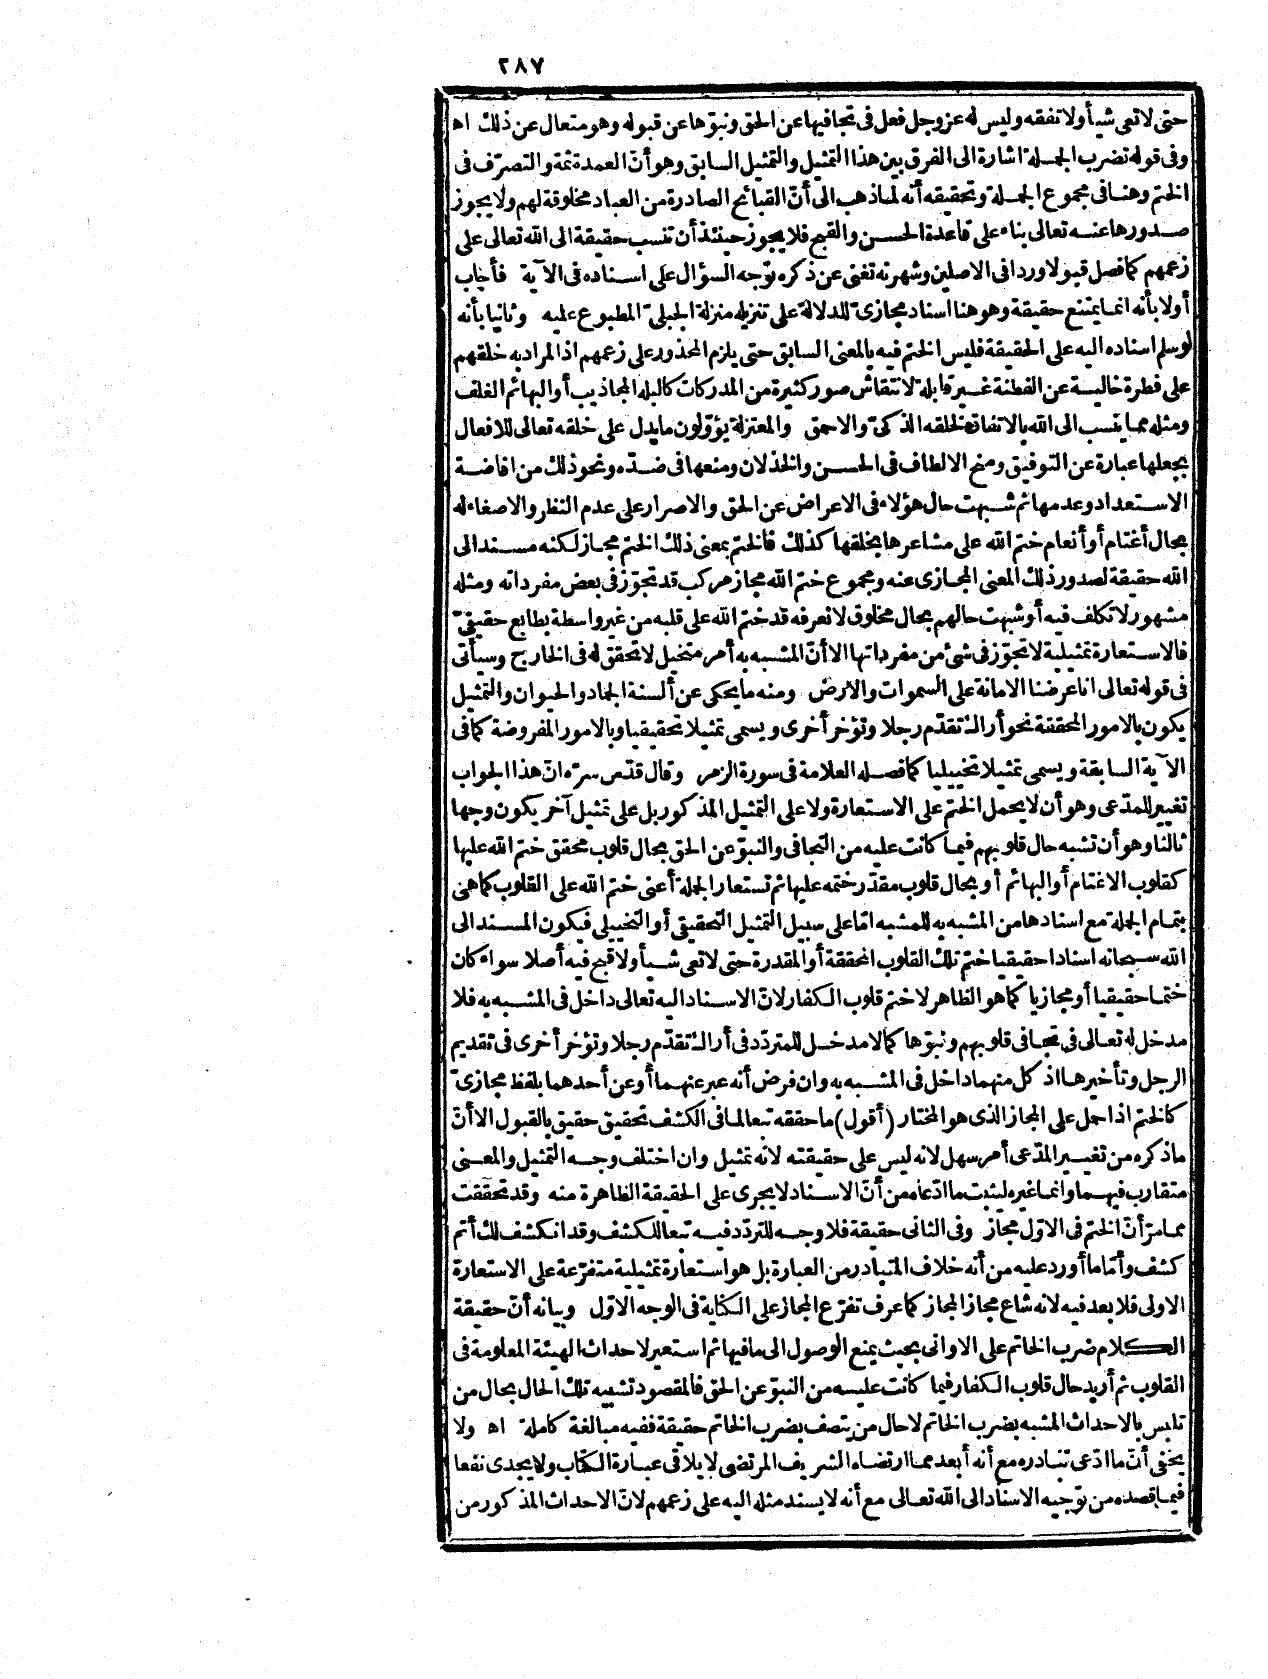 ٢٨٧
حتى لا تعى شيأ ولا تفقه وليس له عز وجل فعل فى تجافيها عن الحق ونبوّها عن قبوله وهو متعال عن ذلك اه
وفى قوله تضرب الجملة اشارة الى الفرق بين هذا التمثيل والتمثيل السابق وهو أنّ العمدة ثمة والتصرّف فى
الختم وهنا فى مجموع الجملة وتحقيقه أنه لما ذهب الى أنّ القبائح الصادرة من العباد مخلوقة لهم ولا يجوز
صدورها عنه تعالى بناء على قاعدة الحسن والقبح فلا يجوز حينئذ أن تنسب حقيقة الى الله تعالى على
زعمهم كما فصل قبولا وردا فى الاصلين وشهرته تغنى عن ذكره توّجه السؤال على اسناده فى الآية فأجاب
أولا بأنه انما يمتنع حقيقة وهو هنا اسناد مجازىّ للدلالة على تنزيله منزلة الجبلىّ المطبوع عليه وثانيا بأنه
لو سلم اسناده اليه على الحقيقة فليس الختم فيه بالمعنى السابق حتى يلزم المحذور على زعمهم اذ المراد به خلقهم
على فطرة خالية عن الفطنة غير قابلة لانتقاش صور كثيرة من المدركات كالبله المجاذيب أو البهائم الغلف
ومثله مما ينسب الى الله بالاتفاق لخلقه الذكىّ والاحمق والمعتزلة يؤوّلون ما يدل على خلقه تعالى للافعال
بجعلها عبارة عن التوفيق ومنح الالطاف فى الحسن والخذلان ومنعها فى ضدّه ونحو ذلك من افاضة
الاستعداد وعدمها ثم شبهت حال هؤلاء فى الاعراض عن الحق والاصرار على عدم النظر والاصغاء له
بحال أغتام أو أنعام ختم الله على مشاعرها بخلقها كذلك فالختم بمعنى ذلك الختم مجاز لكنه مسند الى
الله حقيقة لصدور ذلك المعنى المجازى عنه ومجموع ختم الله مجاز مركب قد تجوّز فى بعض مفرداته ومثله
مشهور لا تكلف فيه أو شبهت حالهم بحال مخلوق لا نعرفه قد ختم الله على قلبه من غير واسطة بطابع حقيقىّ
فالاستعارة تمثيلية لا تجوّز فى شئ من مفرداتها الا أنّ المشبه به أمر متخيل لا تحقق له فى الخارج وسيأتى
فى قوله تعالى انا عرضنا الامانة على السموات والارض ومنه ما يحكى عن ألسنة الجماد والحيوان والتمثيل
يكون بالامور المحققة نحو أراك تقدّم رجلا وتؤخر أخرى ويسمى تمثيلا تحقيقيا وبالامور المفروضة كما فى
الآية السابقة ويسمى تمثيلا تخييليا كما فصله العلامة فى سورة الزمر وقال قدّس سرّه انّ هذا الجواب
تغيير للمدّعى وهو أن لا يحمل الختم على الاستعارة ولا على التمثيل المذكور بل على تمثيل آخر يكون وجها
ثالثا وهو أن تشبه حال قلوبهم فيما كانت عليه من التجافى والنبوّ عن الحق بحال قلوب محقق ختم الله عليها
كقلوب الاغتام أو البهائم أو بحال قلوب مقدّر ختمه عليها ثم تستعار الجملة أعنى ختم الله على القلوب كما هى
بتمام الجملة مع اسنادها من المشبه به للمشبه امّا على سبيل التمثيل التحقيقى أو التخييلى فيكون المسند الى
الله سبحانه اسنادا حقيقيا ختم تلك القلوب المحققة أو المقدرة حتى لا تعى شيأ ولا قبح فيه أصلا سواء كان
ختما حقيقيا أو مجازيا كما هو الظاهر لا ختم قلوب الكفار لانّ الاسناد اليه تعالى داخل فى المشبه به فلا
مدخل له تعالى فى تجافى قلوبهم ونبوّها كما لا مدخل للمتردّد فى أراك تقدّم رجلا وتؤخر أخرى فى تقديم
الرجل وتأخيرها اذ كل منهما داخل فى المشبه به وان فرض أنه عبر عنهما أو عن أحدهما بلفظ مجازىّ
كالختم اذا حمل على المجاز الذى هو المختار (أقول) ما حققه تبعا لما فى الكشف تحقيق حقيق بالقبول الا أنّ
ما ذكره من تغيير المدّعى أمر سهل لانه ليس على حقيقته لانه تمثيل وان اختلف وجه التمثيل والمعنى
متقارب فيهما وانما غيره ليثبت ما ادّعاه من أنّ الاسناد لا يجرى على الحقيقة الظاهرة منه وقد تحققت
مما مرّ أنّ الختم فى الاوّل مجاز وفى الثانى حقيقة فلا وجه للتردّد فيه تبعا للكشف وقد انكشف لك أتم
كشف وأمّا ما أورد عليه من أنه خلاف المتبادر من العبارة بل هو استعارة تمثيلية متفرّعة على الاستعارة
الاولى فلا بعد فيه لانه شاع مجاز المجاز كما عرف تفرّع المجاز على الكناية فى الوجه الاوّل وبيانه أنّ حقيقة
الكلام ضرب الخاتم على الاوانى بحيث يمنع الوصول الى ما فيها ثم استعير لاحداث الهيئة المعلومة فى
القلوب ثم أريد حال قلوب الكفار فيما كانت عليه من النبوّ عن الحق فالمقصود تشبيه تلك الحال بحال من
تلبس بالاحداث المشبه بضرب الخاتم لا حال من يتصف بضرب الخاتم حقيقة ففيه مبالغة كاملة اه ولا
يخفى أنّ ما ادّعى تبادره مع أنه أبعد مما ارتضاه الشريف المرتضى لا يلاقى عبارة الكتاب ولا يجدى نفعا
فيما قصده من توّجيه الاسناد الى الله تعالى مع أنه لا يسند مثله اليه على زعمهم لانّ الاحداث المذكور من